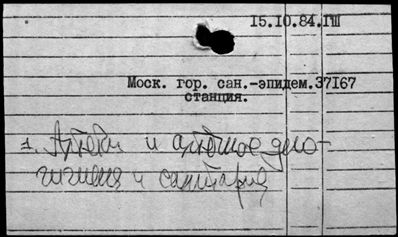 15.10.84.ГШ
Моск. гор. сан.-эпидем.37I67
станция.
1. Аптеки и аптечное дело-
гигиена и санитария